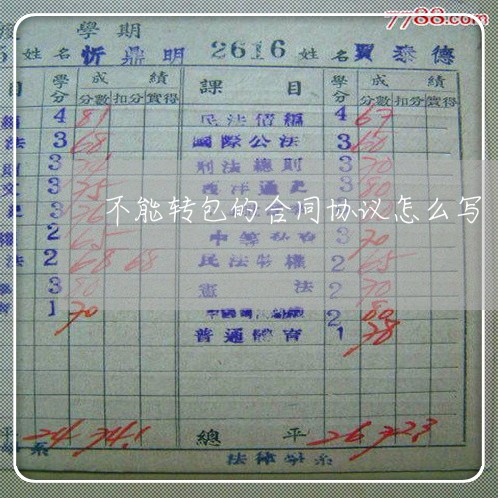 7788.com
學期
姓名 忻鼎明 2616 姓名 賈泰德
目 學分 成績 課目 學分 成績
分數 扣分 實得 分數 扣分 實得
4 81 民法債編 4 67
法 3 68 國際公法 3 60
3 刑法總則 3 70
3 75 西洋通史 3 80
不能转包的合同协议怎么写
3 76
2 65 3 70
法 2 68 68 民法物權 2 65
3 80 憲法 2 70
1 70 2 80
普通體育 1 78
24 74.1 總平 26 72.3
系 法律學系